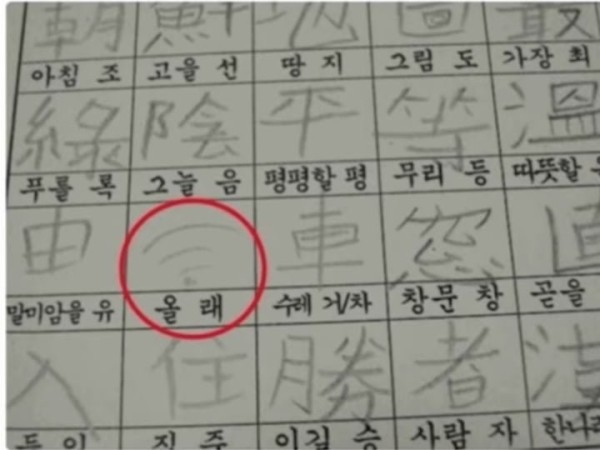 朝 鮮 地 圖 最
아침 조 고을 선 땅 지 그림 도 가장 최
綠 陰 平 等 溫
푸를 록 그늘 음 평평할 평 무리 등 따뜻할
由 車 窓 直
말미암을 유 올 래 수레 거/차 창문 창 곧을
入 住 勝 者
이길 승 사람 자